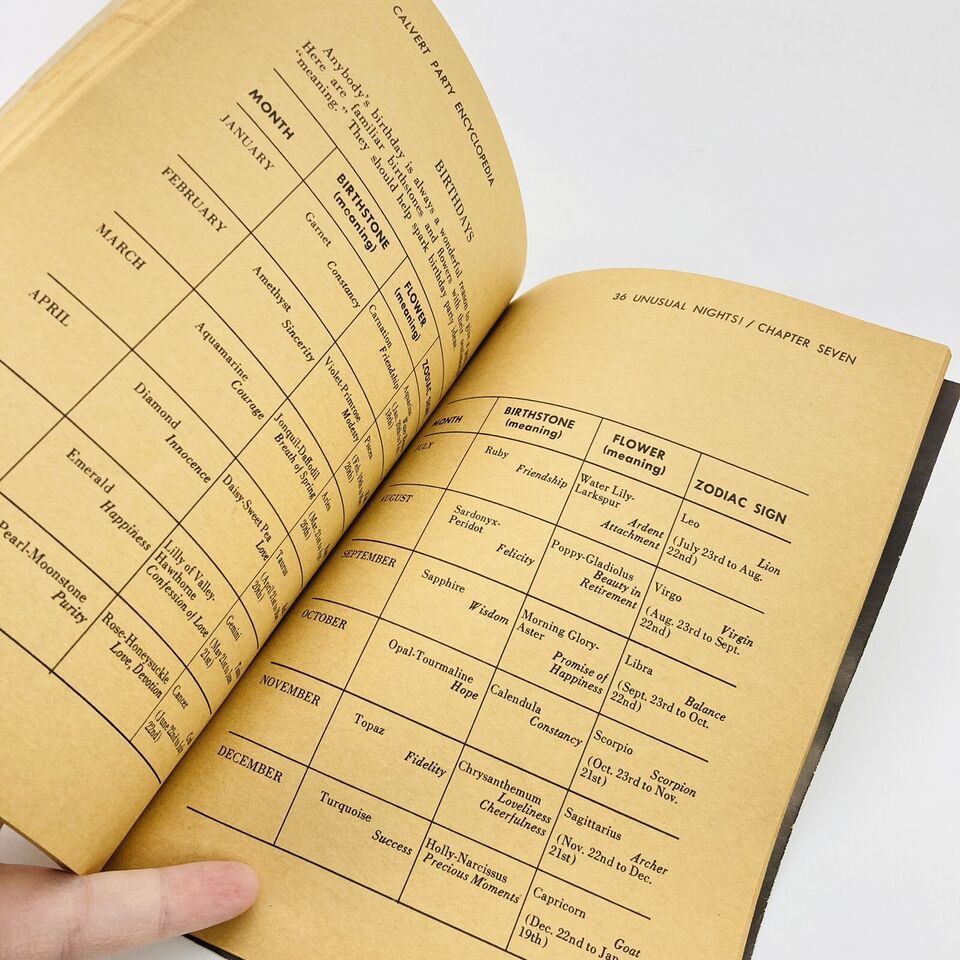 CALVERT PARTY ENCYCLOPEDIA
BIRTHDAYS
Anybody's birthday is always a wonderful reason to
Here are familiar birthstones and flowers with their
"meaning." They should help spark birthday party ideas
MONTH
BIRTHSTONE
(meaning)
FLOWER
(meaning)
ZODIAC
JANUARY
Garnet
Constancy
Carnation
Friendship
Aquarius
FEBRUARY
Amethyst
Sincerity
Violet-Primrose
Modesty
Pisces
MARCH
Aquamarine
Courage
Jonquil-Daffodil
Breath of Spring
Aries
APRIL
Diamond
Innocence
Daisy-Sweet Pea
Love
Taurus
Emerald
Happiness
Lilly of Valley-
Hawthorne
Confession of Love
Gemini
Pearl-Moonstone
Purity
Rose-Honeysuckle
Love, Devotion
Cancer
36 UNUSUAL NIGHTS! / CHAPTER SEVEN
MONTH
BIRTHSTONE
(meaning)
FLOWER
(meaning)
ZODIAC SIGN
JULY
Ruby
Friendship
Water Lily-
Larkspur
Ardent
Attachment
Leo
Lion
(July 23rd to Aug.
22nd)
AUGUST
Sardonyx-
Peridot
Felicity
Poppy-Gladiolus
Beauty in
Retirement
Virgo
Virgin
(Aug. 23rd to Sept.
22nd)
SEPTEMBER
Sapphire
Wisdom
Morning Glory-
Aster
Promise of
Happiness
Libra
Balance
(Sept. 23rd to Oct.
22nd)
OCTOBER
Opal-Tourmaline
Hope
Calendula
Constancy
Scorpio
Scorpion
(Oct. 23rd to Nov.
21st)
NOVEMBER
Topaz
Fidelity
Chrysanthemum
Loveliness
Cheerfulness
Sagittarius
Archer
(Nov. 22nd to Dec.
21st)
DECEMBER
Turquoise
Success
Holly-Narcissus
Precious Moments
Capricorn
Goat
(Dec. 22nd to Jan
19th)